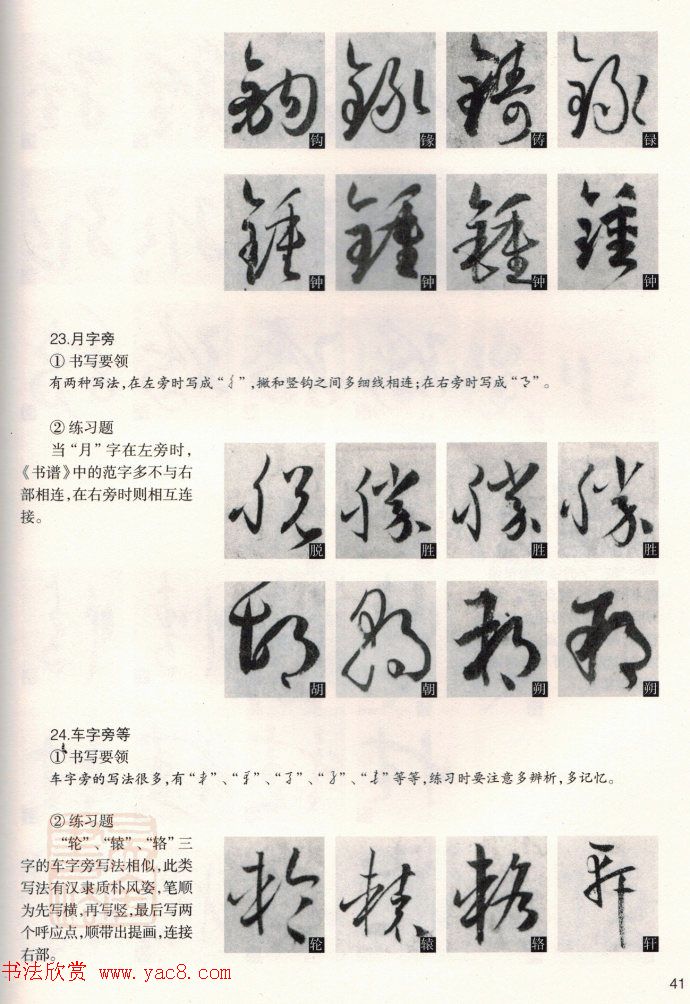 41
钩 缘 铸 铩
钟 钟 钟 钟
23.月字旁
① 书写要领
有两种写法,在左旁时写成“”,撇和竖钩之间多细线相连;在右旁时写成“”。
② 练习题
当“月”字在左旁时,
《书谱》中的范字多不与右
部相连,在右旁时则相互连
接。
脱 胜 胜 胜
胡 朝 朔 朔
24.车字旁等
① 书写要领
车字旁的写法很多,有“”、“”、“”、“”、“”等等,练习时要注意多辨析,多记忆。
② 练习题
“轮”、“辕”、“辂”三
字的车字旁写法相似,此类
写法有汉隶质朴风姿,笔顺
为先写横,再写竖,最后写两
个呼应点,顺带出提画,连接
右部。
轮 辕 辂 轩
书法欣赏 www.yac8.com
41